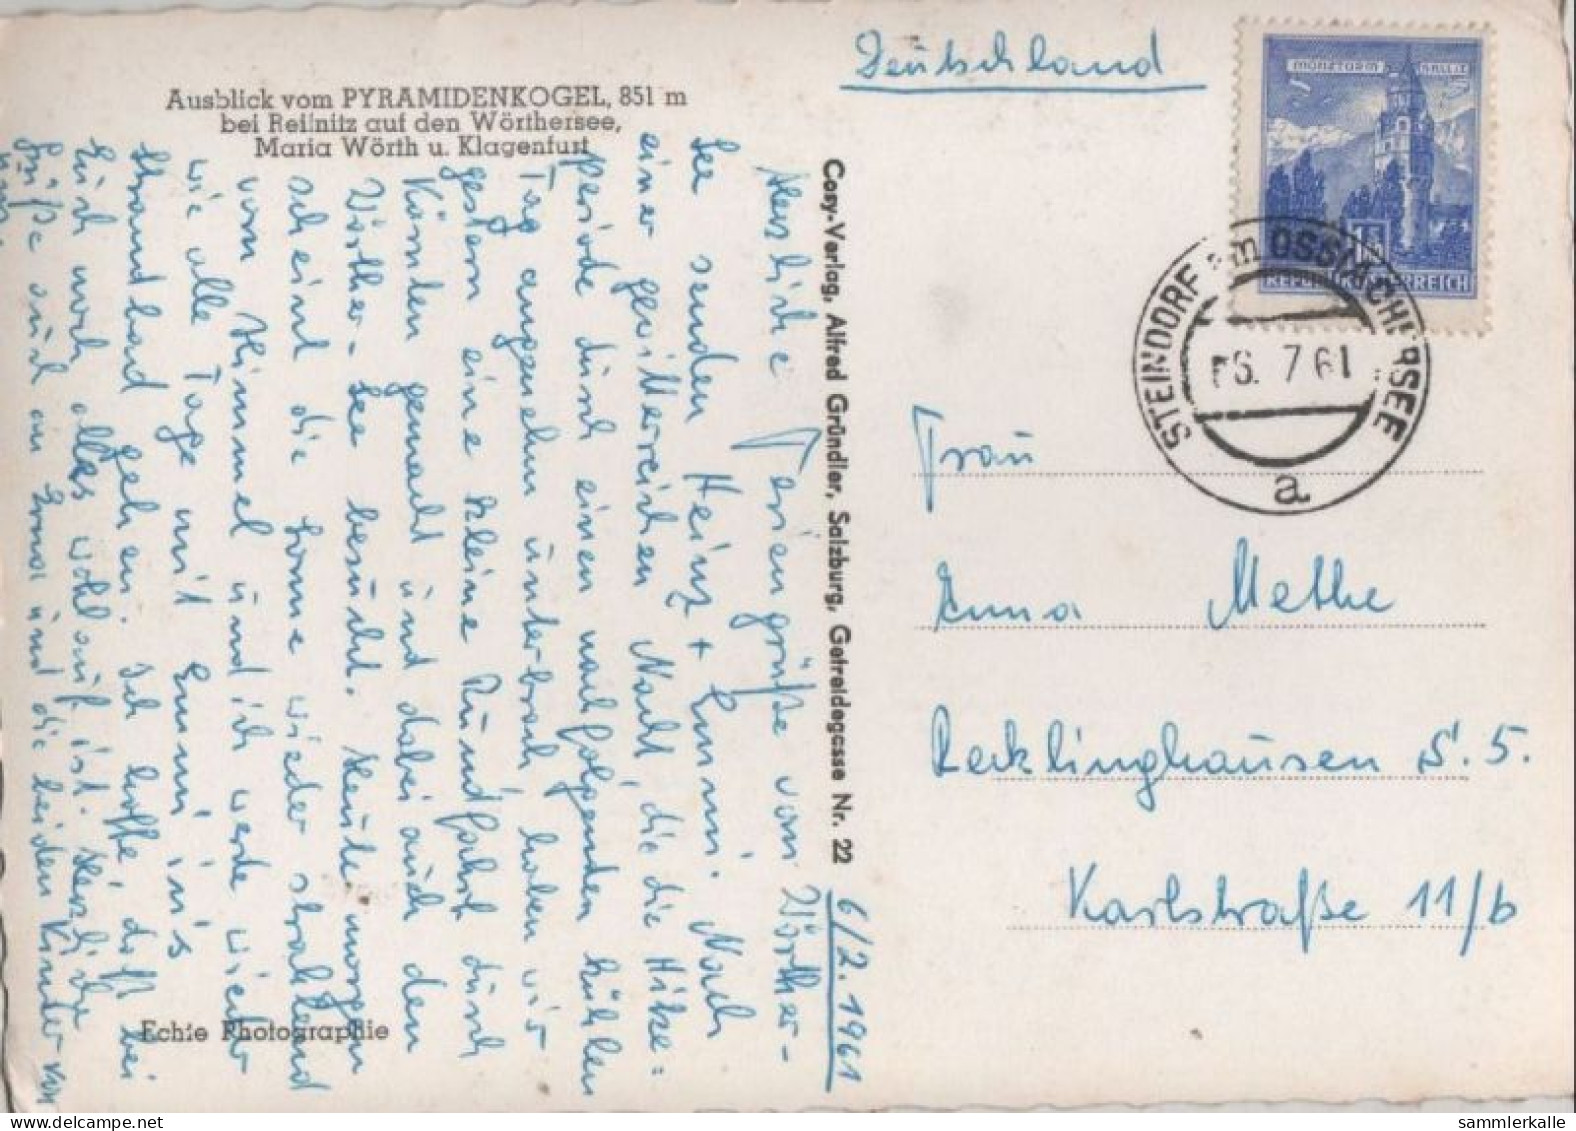 Ausblick vom PYRAMIDENKOGEL, 851 m
bei Reifnitz auf den Wörthersee,
Maria Wörth u. Klagenfurt
6/7. 1961
Herzliche Feriengrüße vom Wörther-
See senden Heinz + Emmi. Nach
einer gewitterreichen Nacht, die die Hitze=
periode durch einen nachfolgenden kühlen
Tag angenehm unterbrach, haben wir
gestern eine kleine Rundfahrt durch
Kärnten gemacht und dabei auch den
Wörther-See besucht. Heute morgen
scheint die Sonne wieder strahlend
vom Himmel und ich werde wieder
wie alle Tage mit Emmi in's
Strandbad gehen. Ich hoffe, daß bei
Euch noch alles wohlauf ist. Herzliche
Grüße auch an Erna und die beiden Kinder von
uns.
Echte Photographie
Cosy-Verlag, Alfred Gründler, Salzburg, Getreidegasse Nr. 22
Deutschland
MÜNZTURM HALL I.T.
1.50
REPUBLIK ÖSTERREICH
STEINDORF am OSSIACHERSEE
6. 7 61
a
Frau
Anna Methe
Recklinghausen S. 5.
Karlstraße 11/b
sammlerkalle